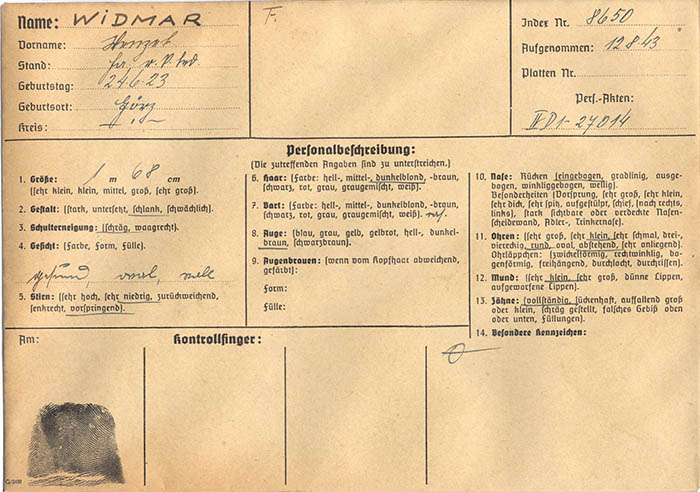 Name: WiDMAR
Vorname: Wenzel
Stand:
Geburtstag: 24.6.23
Geburtsort: Görz
Kreis:
F.
Index Nr. 8650
Aufgenommen: 12.8.43
Platten Nr.
Pers.-Akten:
IV D1-27014
Personalbeschreibung:
(Die zutreffenden Angaben sind zu unterstreichen.)
1. Größe: 1 m 68 cm
(sehr klein, klein, mittel, groß, sehr groß).
2. Gestalt: (stark, untersetzt, schlank, schwächlich).
3. Schulterneigung: (schräg, waagrecht).
4. Gesicht: (Farbe, Form, Fülle).
gesund, oval, voll
5. Stirn: (sehr hoch, sehr niedrig, zurückweichend,
senkrecht, vorspringend).
6. Haar: (Farbe: hell-, mittel-, dunkelblond, -braun,
schwarz, rot, grau, graugemischt, weiß).
7. Bart: (Farbe: hell-, mittel-, dunkelblond, -braun,
schwarz, rot, grau, graugemischt, weiß). ras.
8. Auge: (blau, grau, gelb, gelbrot, hell-, dunkel-
braun, schwarzbraun).
9. Augenbrauen: (wenn vom Kopfhaar abweichend,
gefärbt):
Form:
Fülle:
10. Nase: Rücken (eingebogen, gradlinig, ausge-
bogen, winkliggebogen, wellig).
Besonderheiten (Vorsprung, sehr groß, sehr klein,
sehr dick, sehr spitz, aufgestülpt, schief, (nach rechts,
links), stark sichtbare oder verdeckte Nasen-
scheidewand, Adler-, Trinkernase).
11. Ohren: (sehr groß, sehr klein, sehr schmal, drei-,
viereckig, rund, oval, abstehend, sehr anliegend).
Ohrläppchen: (zwickelförmig, rechtwinklig, bo-
genförmig, freihängend, durchlocht, durchrissen).
12. Mund: (sehr klein, sehr groß, dünne Lippen,
aufgeworfene Lippen).
13. Zähne: (vollständig, lückenhaft, auffallend groß
oder klein, schräg gestellt, falsches Gebiß oben
oder unten, Füllungen).
14. Besondere Kennzeichen:
Am:
Kontrollfinger: